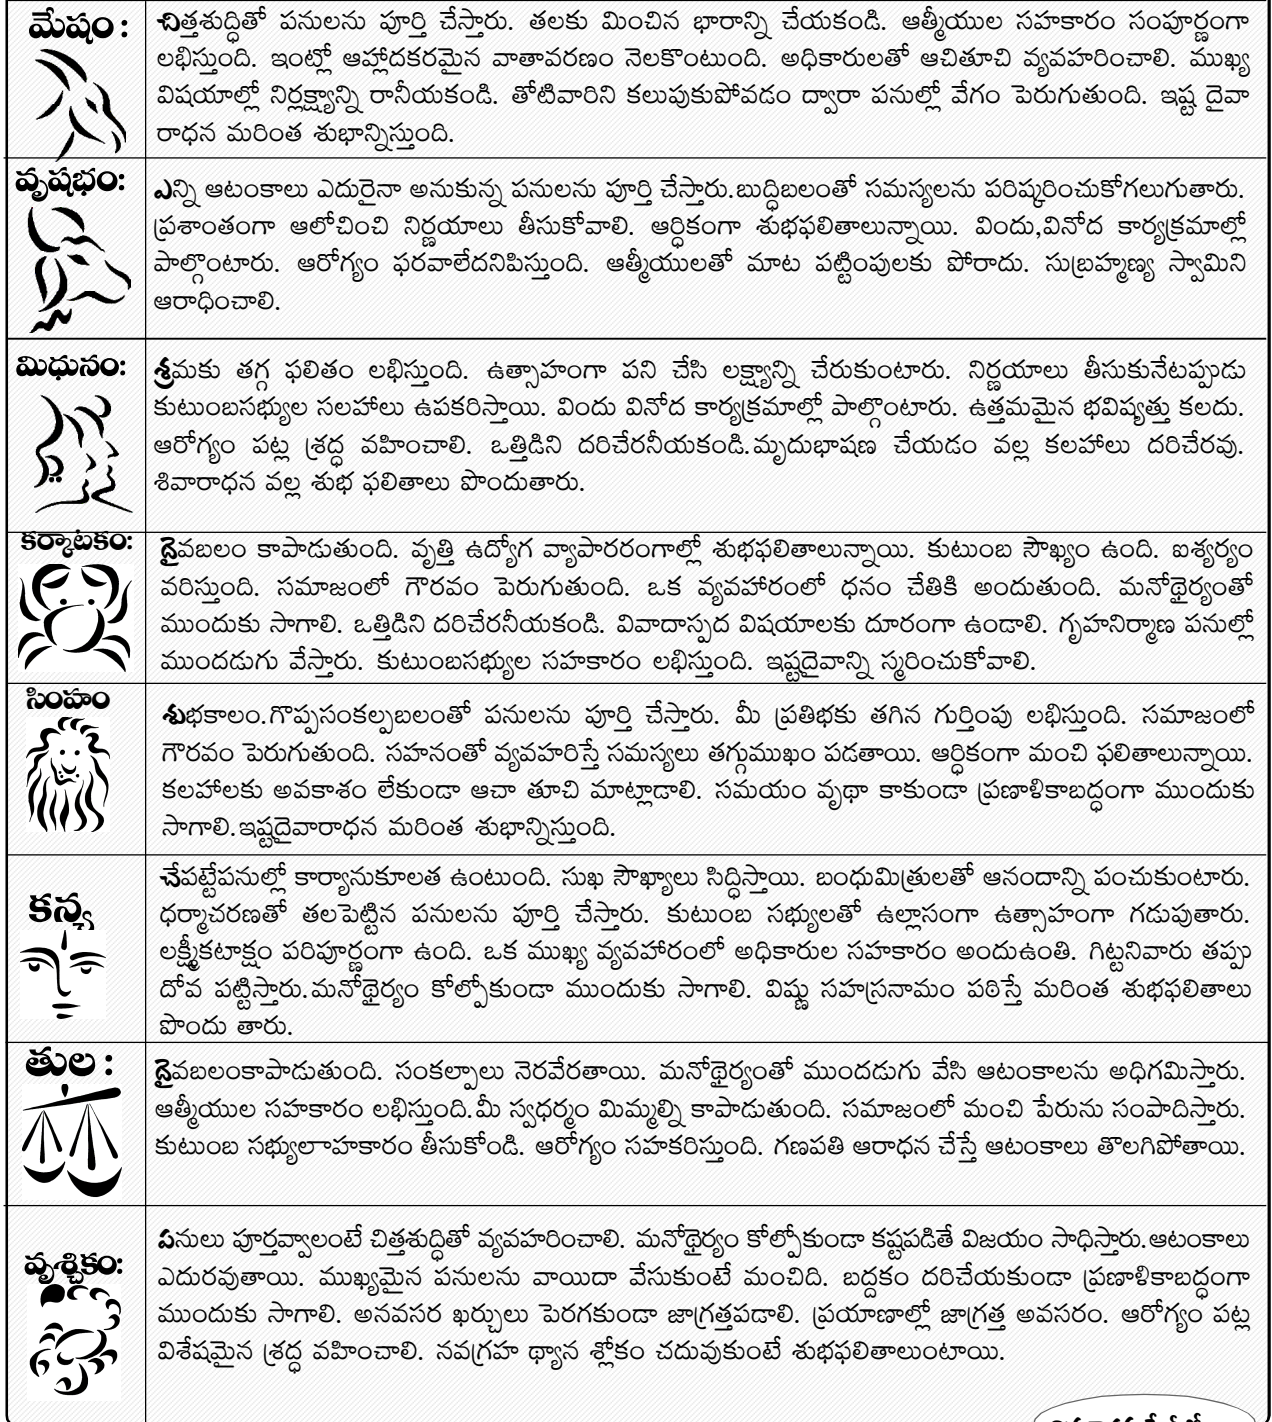 మేషం :
చిత్తశుద్ధితో పనులను పూర్తి చేస్తారు. తలకు మించిన భారాన్ని చేయకండి. ఆత్మీయుల సహకారం సంపూర్ణంగా
లభిస్తుంది. ఇంట్లో ఆహ్లాదకరమైన వాతావరణం నెలకొంటుంది. అధికారులతో ఆచితూచి వ్యవహరించాలి. ముఖ్య
విషయాల్లో నిర్లక్ష్యాన్ని రానీయకండి. తోటివారిని కలుపుకుపోవడం ద్వారా పనుల్లో వేగం పెరుగుతుంది. ఇష్ట దైవా
రాధన మరింత శుభాన్నిస్తుంది.
వృషభం:
ఎన్ని ఆటంకాలు ఎదురైనా అనుకున్న పనులను పూర్తి చేస్తారు.బుద్ధిబలంతో సమస్యలను పరిష్కరించుకోగలుగుతారు.
ప్రశాంతంగా ఆలోచించి నిర్ణయాలు తీసుకోవాలి. ఆర్ధికంగా శుభఫలితాలున్నాయి. విందు,వినోద కార్యక్రమాల్లో
పాల్గొంటారు. ఆరోగ్యం ఫరవాలేదనిపిస్తుంది. ఆత్మీయులతో మాట పట్టింపులకు పోరాదు. సుబ్రహ్మణ్య స్వామిని
ఆరాధించాలి.
మిధునం:
శ్రమకు తగ్గ ఫలితం లభిస్తుంది. ఉత్సాహంగా పని చేసి లక్ష్యాన్ని చేరుకుంటారు. నిర్ణయాలు తీసుకునేటప్పుడు
కుటుంబసభ్యుల సలహాలు ఉపకరిస్తాయి. విందు వినోద కార్యక్రమాల్లో పాల్గొంటారు. ఉత్తమమైన భవిష్యత్తు కలదు.
ఆరోగ్యం పట్ల శ్రద్ధ వహించాలి. ఒత్తిడిని దరిచేరనీయకండి.మృదుభాషణ చేయడం వల్ల కలహాలు దరిచేరవు.
శివారాధన వల్ల శుభ ఫలితాలు పొందుతారు.
కర్కాటకం:
దైవబలం కాపాడుతుంది. వృత్తి ఉద్యోగ వ్యాపారరంగాల్లో శుభఫలితాలున్నాయి. కుటుంబ సౌఖ్యం ఉంది. ఐశ్యర్యం
వరిస్తుంది. సమాజంలో గౌరవం పెరుగుతుంది. ఒక వ్యవహారంలో ధనం చేతికి అందుతుంది. మనోథైర్యంతో
ముందుకు సాగాలి. ఒత్తిడిని దరిచేరనీయకండి. వివాదాస్పద విషయాలకు దూరంగా ఉండాలి. గృహనిర్మాణ పనుల్లో
ముందడుగు వేస్తారు. కుటుంబసభ్యుల సహకారం లభిస్తుంది. ఇష్టదైవాన్ని స్మరించుకోవాలి.
సింహం
శుభకాలం.గొప్పసంకల్పబలంతో పనులను పూర్తి చేస్తారు. మీ ప్రతిభకు తగిన గుర్తింపు లభిస్తుంది. సమాజంలో
గౌరవం పెరుగుతుంది. సహనంతో వ్యవహరిస్తే సమస్యలు తగ్గుముఖం పడతాయి. ఆర్ధికంగా మంచి ఫలితాలున్నాయి.
కలహాలకు అవకాశం లేకుండా ఆచా తూచి మాట్లాడాలి. సమయం వృథా కాకుండా ప్రణాళికాబద్ధంగా ముందుకు
సాగాలి.ఇష్టదైవారాధన మరింత శుభాన్నిస్తుంది.
కన్య
చేపట్టేపనుల్లో కార్యానుకూలత ఉంటుంది. సుఖ సౌఖ్యాలు సిద్ధిస్తాయి. బంధుమిత్రులతో ఆనందాన్ని పంచుకుంటారు.
ధర్మాచరణతో తలపెట్టిన పనులను పూర్తి చేస్తారు. కుటుంబ సభ్యులతో ఉల్లాసంగా ఉత్సాహంగా గడుపుతారు.
లక్ష్మీకటాక్షం పరిపూర్ణంగా ఉంది. ఒక ముఖ్య వ్యవహారంలో అధికారుల సహకారం అందుఉంతి. గిట్టనివారు తప్పు
దోవ పట్టిస్తారు.మనోథైర్యం కోల్పోకుండా ముందుకు సాగాలి. విష్ణు సహస్రనామం పఠిస్తే మరింత శుభఫలితాలు
పొందు తారు.
తుల :
దైవబలంకాపాడుతుంది. సంకల్పాలు నెరవేరతాయి. మనోథైర్యంతో ముందడుగు వేసి ఆటంకాలను అధిగమిస్తారు.
ఆత్మీయుల సహకారం లభిస్తుంది.మీ స్వధర్మం మిమ్మల్ని కాపాడుతుంది. సమాజంలో మంచి పేరును సంపాదిస్తారు.
కుటుంబ సభ్యులాాహకారం తీసుకోండి. ఆరోగ్యం సహకరిస్తుంది. గణపతి ఆరాధన చేస్తే ఆటంకాలు తొలగిపోతాయి.
వృశ్చికం:
పనులు పూర్తవ్వాలంటే చిత్తశుద్ధితో వ్యవహరించాలి. మనోథైర్యం కోల్పోకుండా కష్టపడితే విజయం సాధిస్తారు.ఆటంకాలు
ఎదురవుతాయి. ముఖ్యమైన పనులను వాయిదా వేసుకుంటే మంచిది. బద్దకం దరిచేయకుండా ప్రణాళికాబద్ధంగా
ముందుకు సాగాలి. అనవసర ఖర్చులు పెరగకుండా జాగ్రత్తపడాలి. ప్రయాణాల్లో జాగ్రత్త అవసరం. ఆరోగ్యం పట్ల
విశేషమైన శ్రద్ధ వహించాలి. నవగ్రహ థ్యాన శ్లోకం చదువుకుంటే శుభఫలితాలుంటాయి.